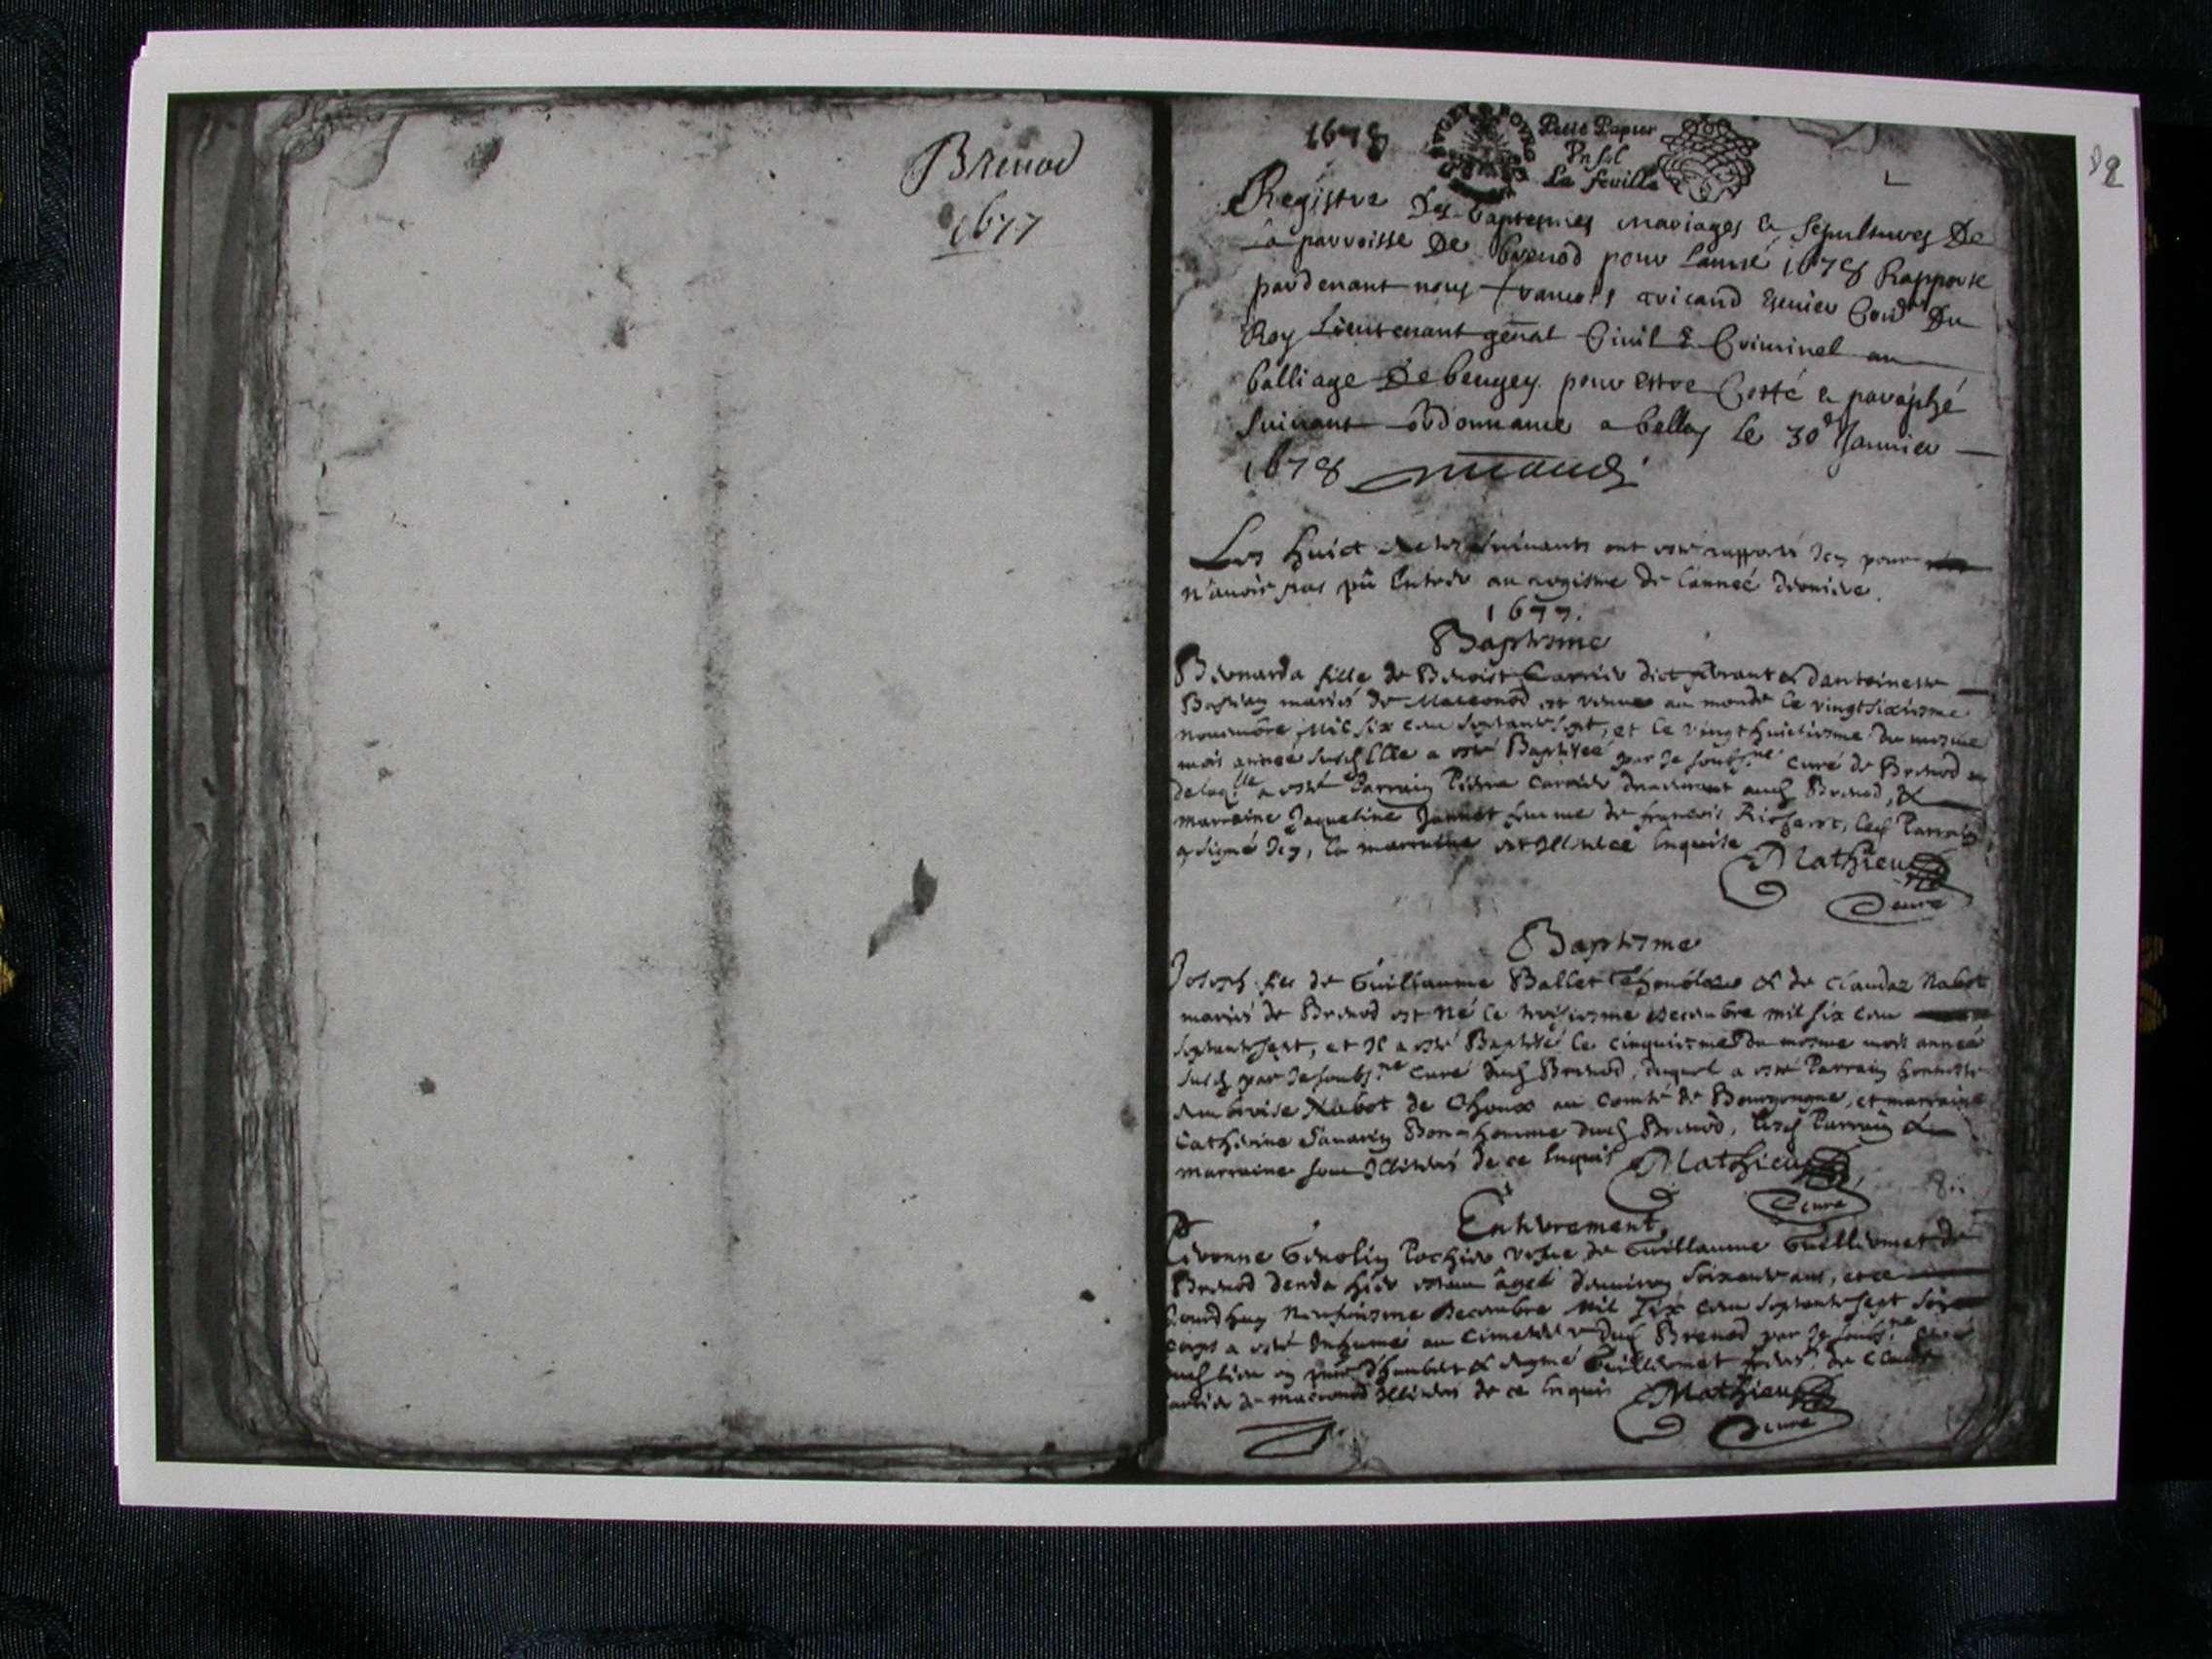 Brenod
1677
1678
Petit Papier
Un sol
La feuille
Registre Des baptesmes mariages & sepultures De
la parroisse De brenod pour lannee 1678 Rapporté
pardevant nous francois Du
Roy Lieutenant genal Civil & Criminel au
balliage De beugey pour estre Cotté & paraphé
suivant ordonnance a belley le 30e Janvier
1678
Les huict actes suivants ont esté rapportés Icy pour
n'avoir pas pû Entrer au registre de l'année derniere.
1677.
Baptesme
Bernarda fille de Benoist Carrier dict & dantoinette
mariés de Maconod est venue au monde le vingtsixiesme
novembre mil six cen septantesept, et le vingthuictiesme du mesme
mois année susd Elle a esté Baptisée par Je soubs.né curé de Brenod
delaq.lle a esté Parrain Pierre Carrier demeurant aud Brenod, &
marraine Jaqueline Jannet femme de francois Richerot, led Parrain
a signé Icy, la marraine est Illiterée Enquise
Mathieu
curé
Baptesme
Joseph fils de Guillaume Ballet & de Claudaz Nabot
mariés de Brenod est né le troisiesme decembre mil six cen
septantesept, et Il a esté Baptisé le cinquiesme du mesme mois année
susd par Je soubs.né curé dud Brenod, duquel a esté Parrain honneste
Ambroise Nabot de Choux au Comté de Bourgongne, et marraine
Catherine Savarin Bon-homme dud Brenod, lesd Parrain &
marraine sont Illiterés de ce Enquis Mathieu
curé
Enterrement
Pivonne Ginolin Pochier vefve de Guillaume Guillermet de
Brenod deceda hier estant âgée denviron soixante ans, et ce
jourdhuy neufviesme decembre mil six cen septantesept son
corps a esté Inhumé au cimetiere dud Brenod par Je soubs.né curé
dud lieu en pnce d'humbert & Guillermet freres, de Claude
Carrier de maconod Illiterés de ce Enquis Mathieu
curé